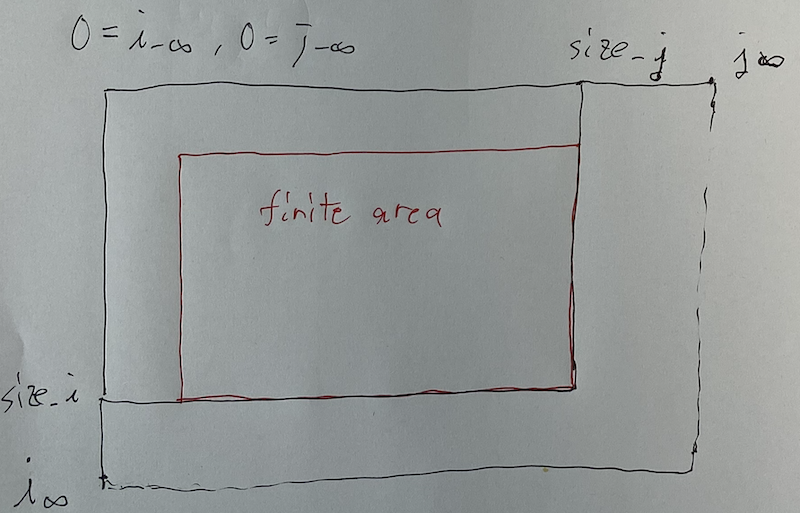 0 = i₋∞ , 0 = j₋∞
size_j j∞
finite area
size_i
i∞